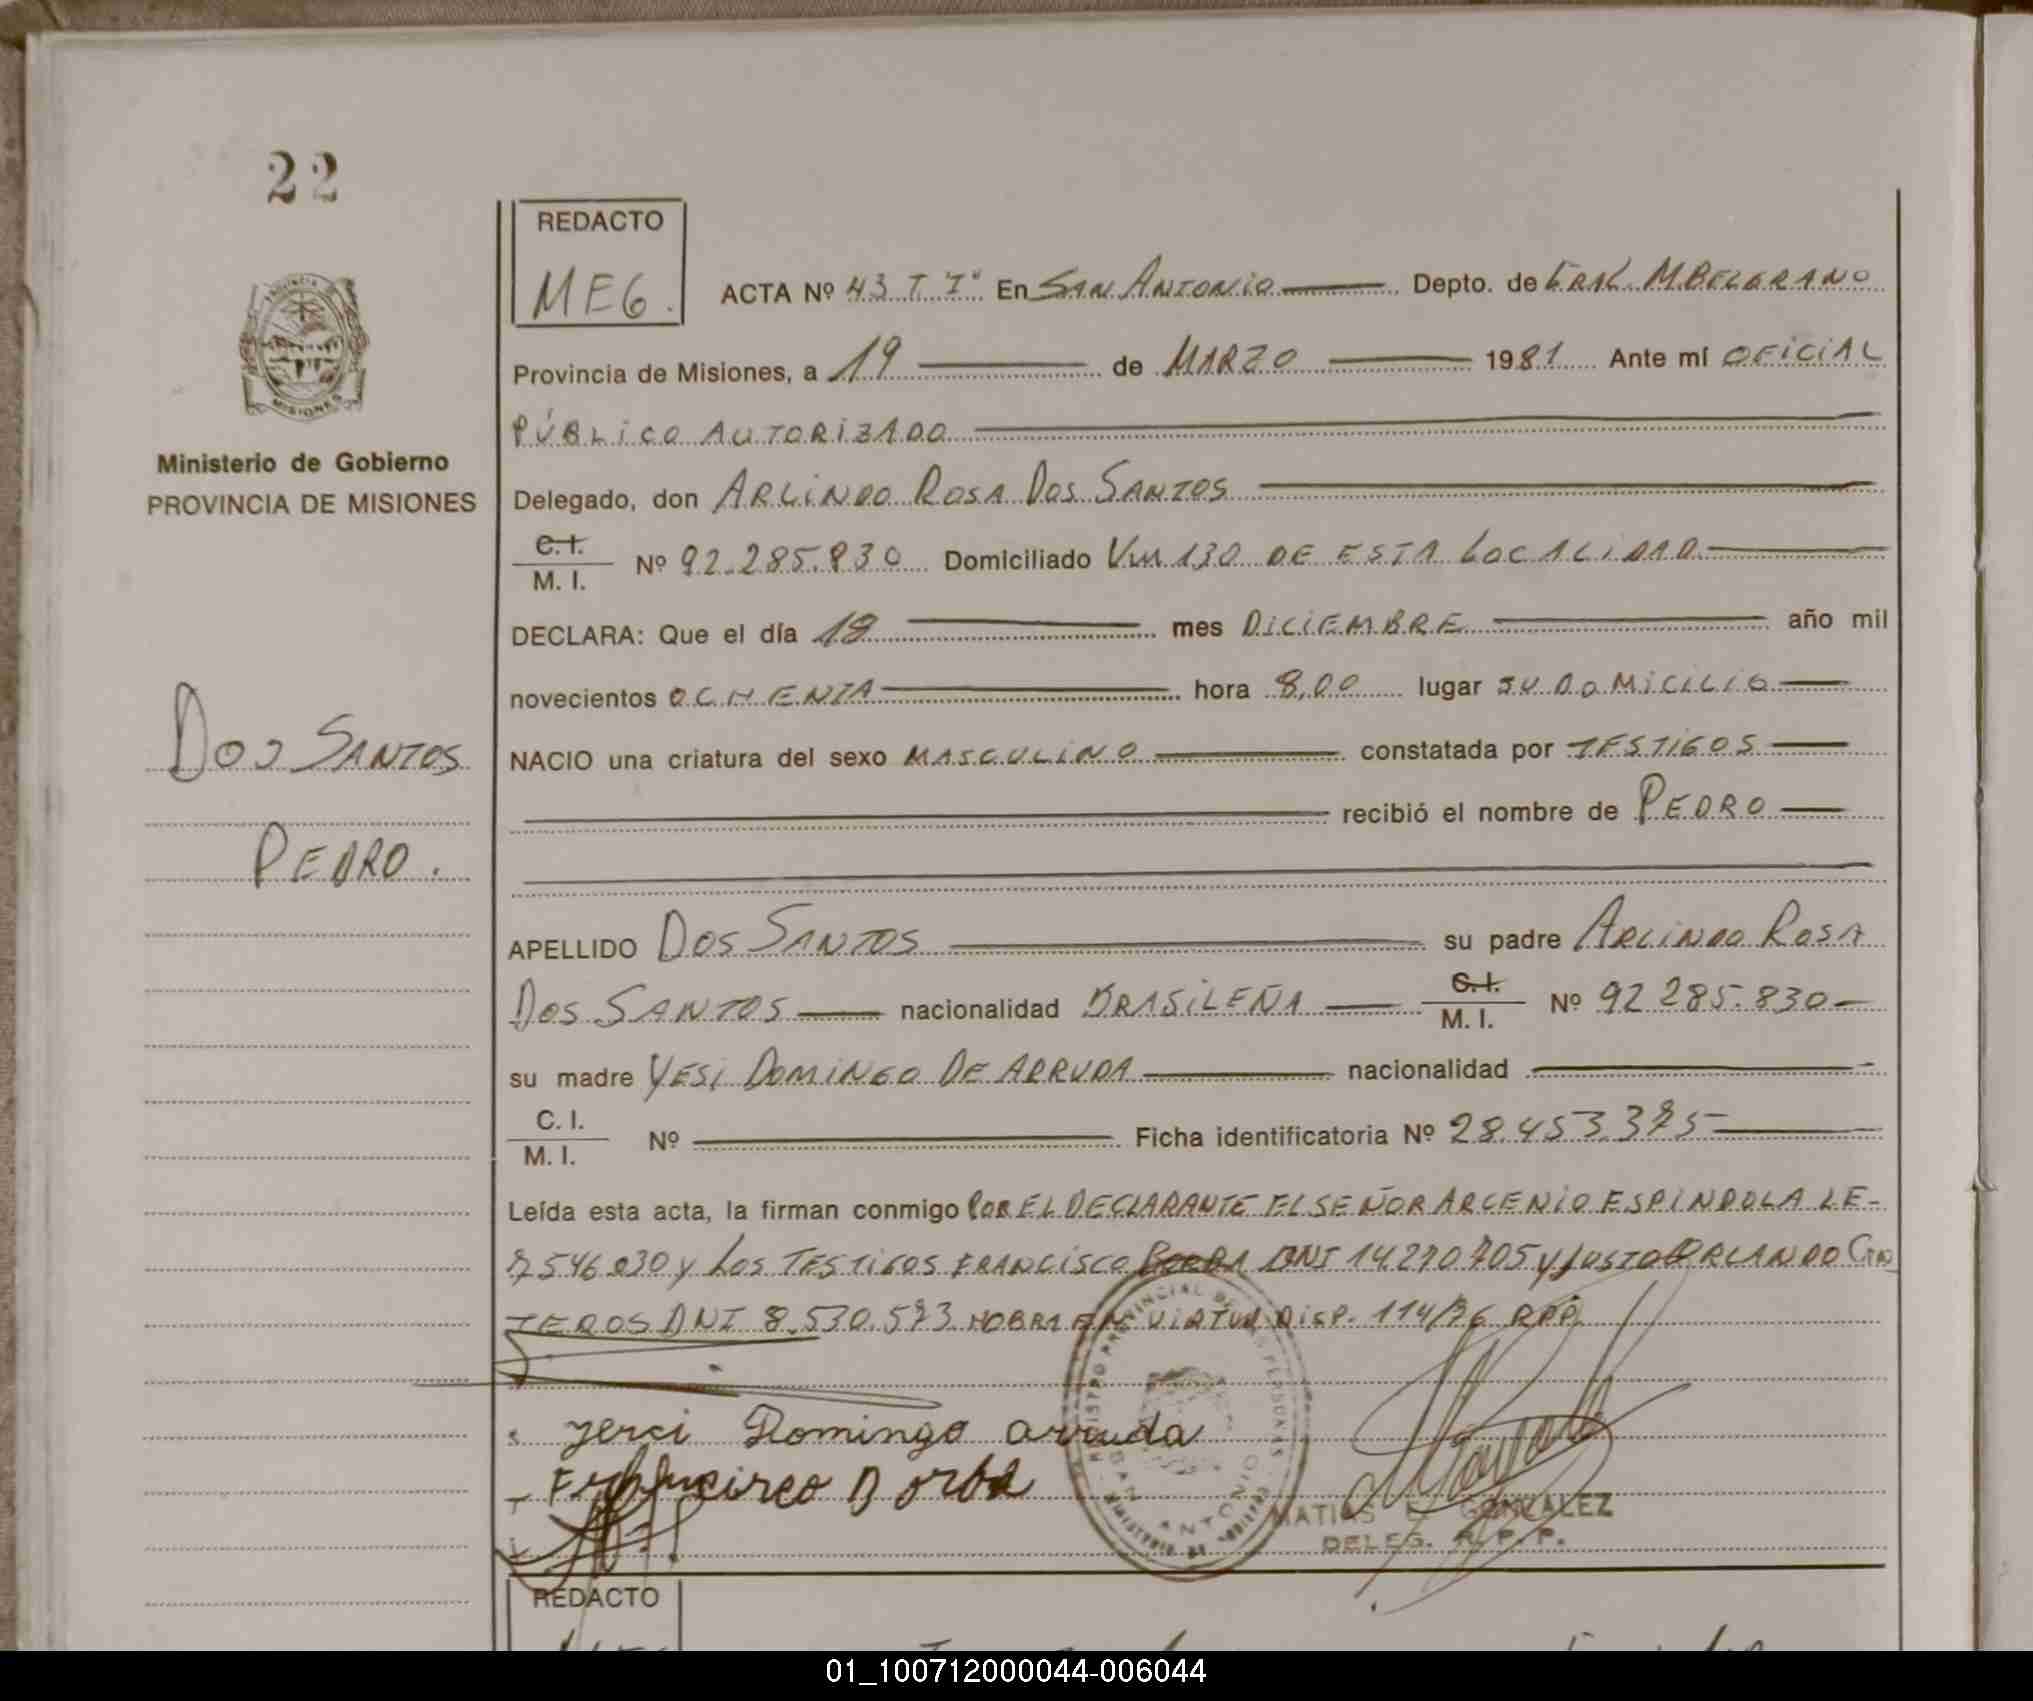 22
REDACTO
MEG.
ACTA Nº 43 T Iº En SAN ANTONIO Depto. de GRAL. M. BELGRANO
Provincia de Misiones, a 19 de MARZO 1981 Ante mí OFICIAL
PÚBLICO AUTORIZADO
Ministerio de Gobierno
PROVINCIA DE MISIONES
Delegado, don ARLINDO ROSA DOS SANTOS
C.I.
M. I. Nº 92.285.830 Domiciliado KM 130 DE ESTA LOCALIDAD
DECLARA: Que el día 18 mes DICIEMBRE año mil
novecientos OCHENTA hora 8,00 lugar SU DOMICILIO
DOS SANTOS
PEDRO.
NACIO una criatura del sexo MASCULINO constatada por TESTIGOS
recibió el nombre de PEDRO
APELLIDO DOS SANTOS su padre ARLINDO ROSA
DOS SANTOS nacionalidad BRASILEÑA C.I. M. I. Nº 92.285.830
su madre YESI DOMINGO DE ARRUDA nacionalidad
C. I.
M. I. Nº Ficha identificatoria Nº 28.453.375
Leída esta acta, la firman conmigo POR EL DECLARANTE EL SEÑOR ARCENIO ESPINDOLA LE-
7546030 y LOS TESTIGOS FRANCISCO BORBA DNI 14.270.705 y JUSTO ORLANDO
DNI 8.530.573 HOBRA EN VIRTUD DISP. 114/76 RPP
REGISTRO PROVINCIAL DE LAS PERSONAS
SAN ANTONIO
MINISTERIO DE GOBIERNO
yerci Domingo arruda
Francisco Borba
MATIAS E. GONZALEZ
DELEG. R. P. P.
REDACTO
01_100712000044-006044